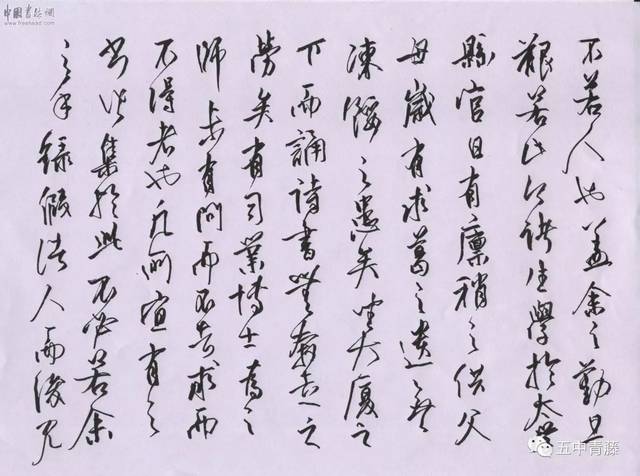 中國書法網
www.freehead.com
不若人也蓋余之勤且
艱若此今諸生學於太學
縣官日有廩稍之供父
母歲有求葛之遺無
凍餒之患矣坐大厦之
下而誦詩書無奔走之
勞矣有司業博士為之
師未有問而不告求而
不得者也凡所宜有之
書皆集於此不必若余
之手録假諸人而後見
五中青藤